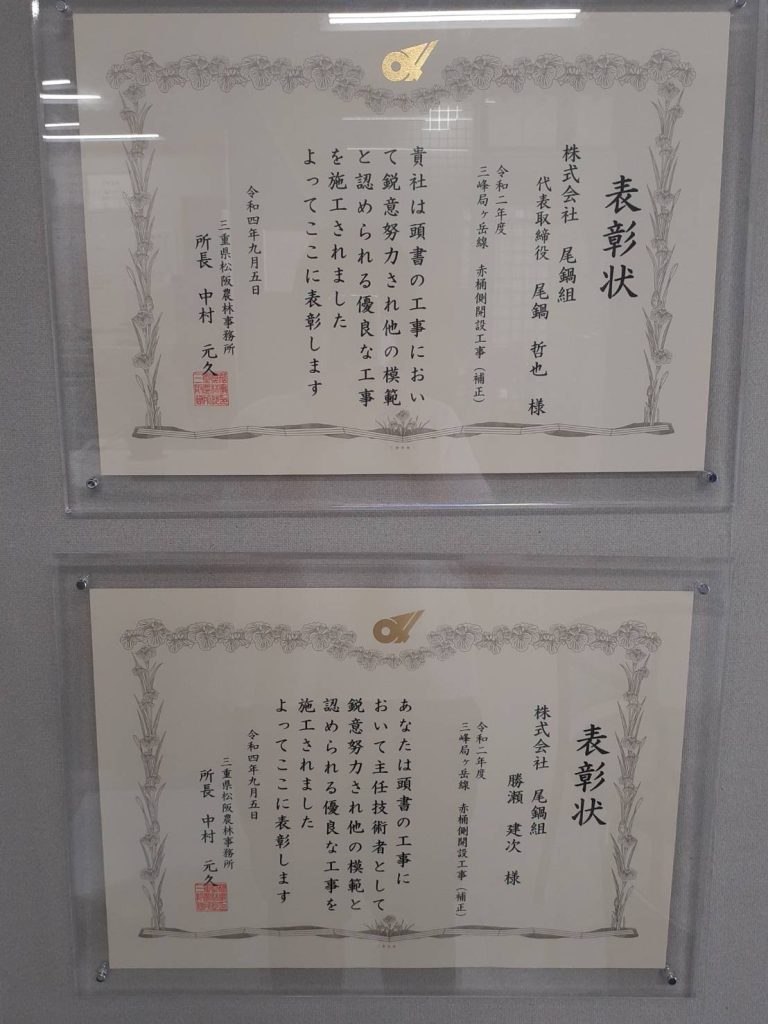 表彰状
株式会社 尾鍋組
代表取締役 尾鍋 哲也 様
令和二年度
三峰局ヶ岳線 赤桶側開設工事（補正）
貴社は頭書の工事におい
て鋭意努力され他の模範
と認められる優良な工事
を施工されました
よってここに表彰します
令和四年九月五日
三重県松阪農林事務所
所長 中村 元久
表彰状
株式会社 尾鍋組
勝瀬 建次 様
令和二年度
三峰局ヶ岳線 赤桶側開設工事（補正）
あなたは頭書の工事に
おいて主任技術者として
鋭意努力され他の模範と
認められる優良な工事を
施工されました
よってここに表彰します
令和四年九月五日
三重県松阪農林事務所
所長 中村 元久